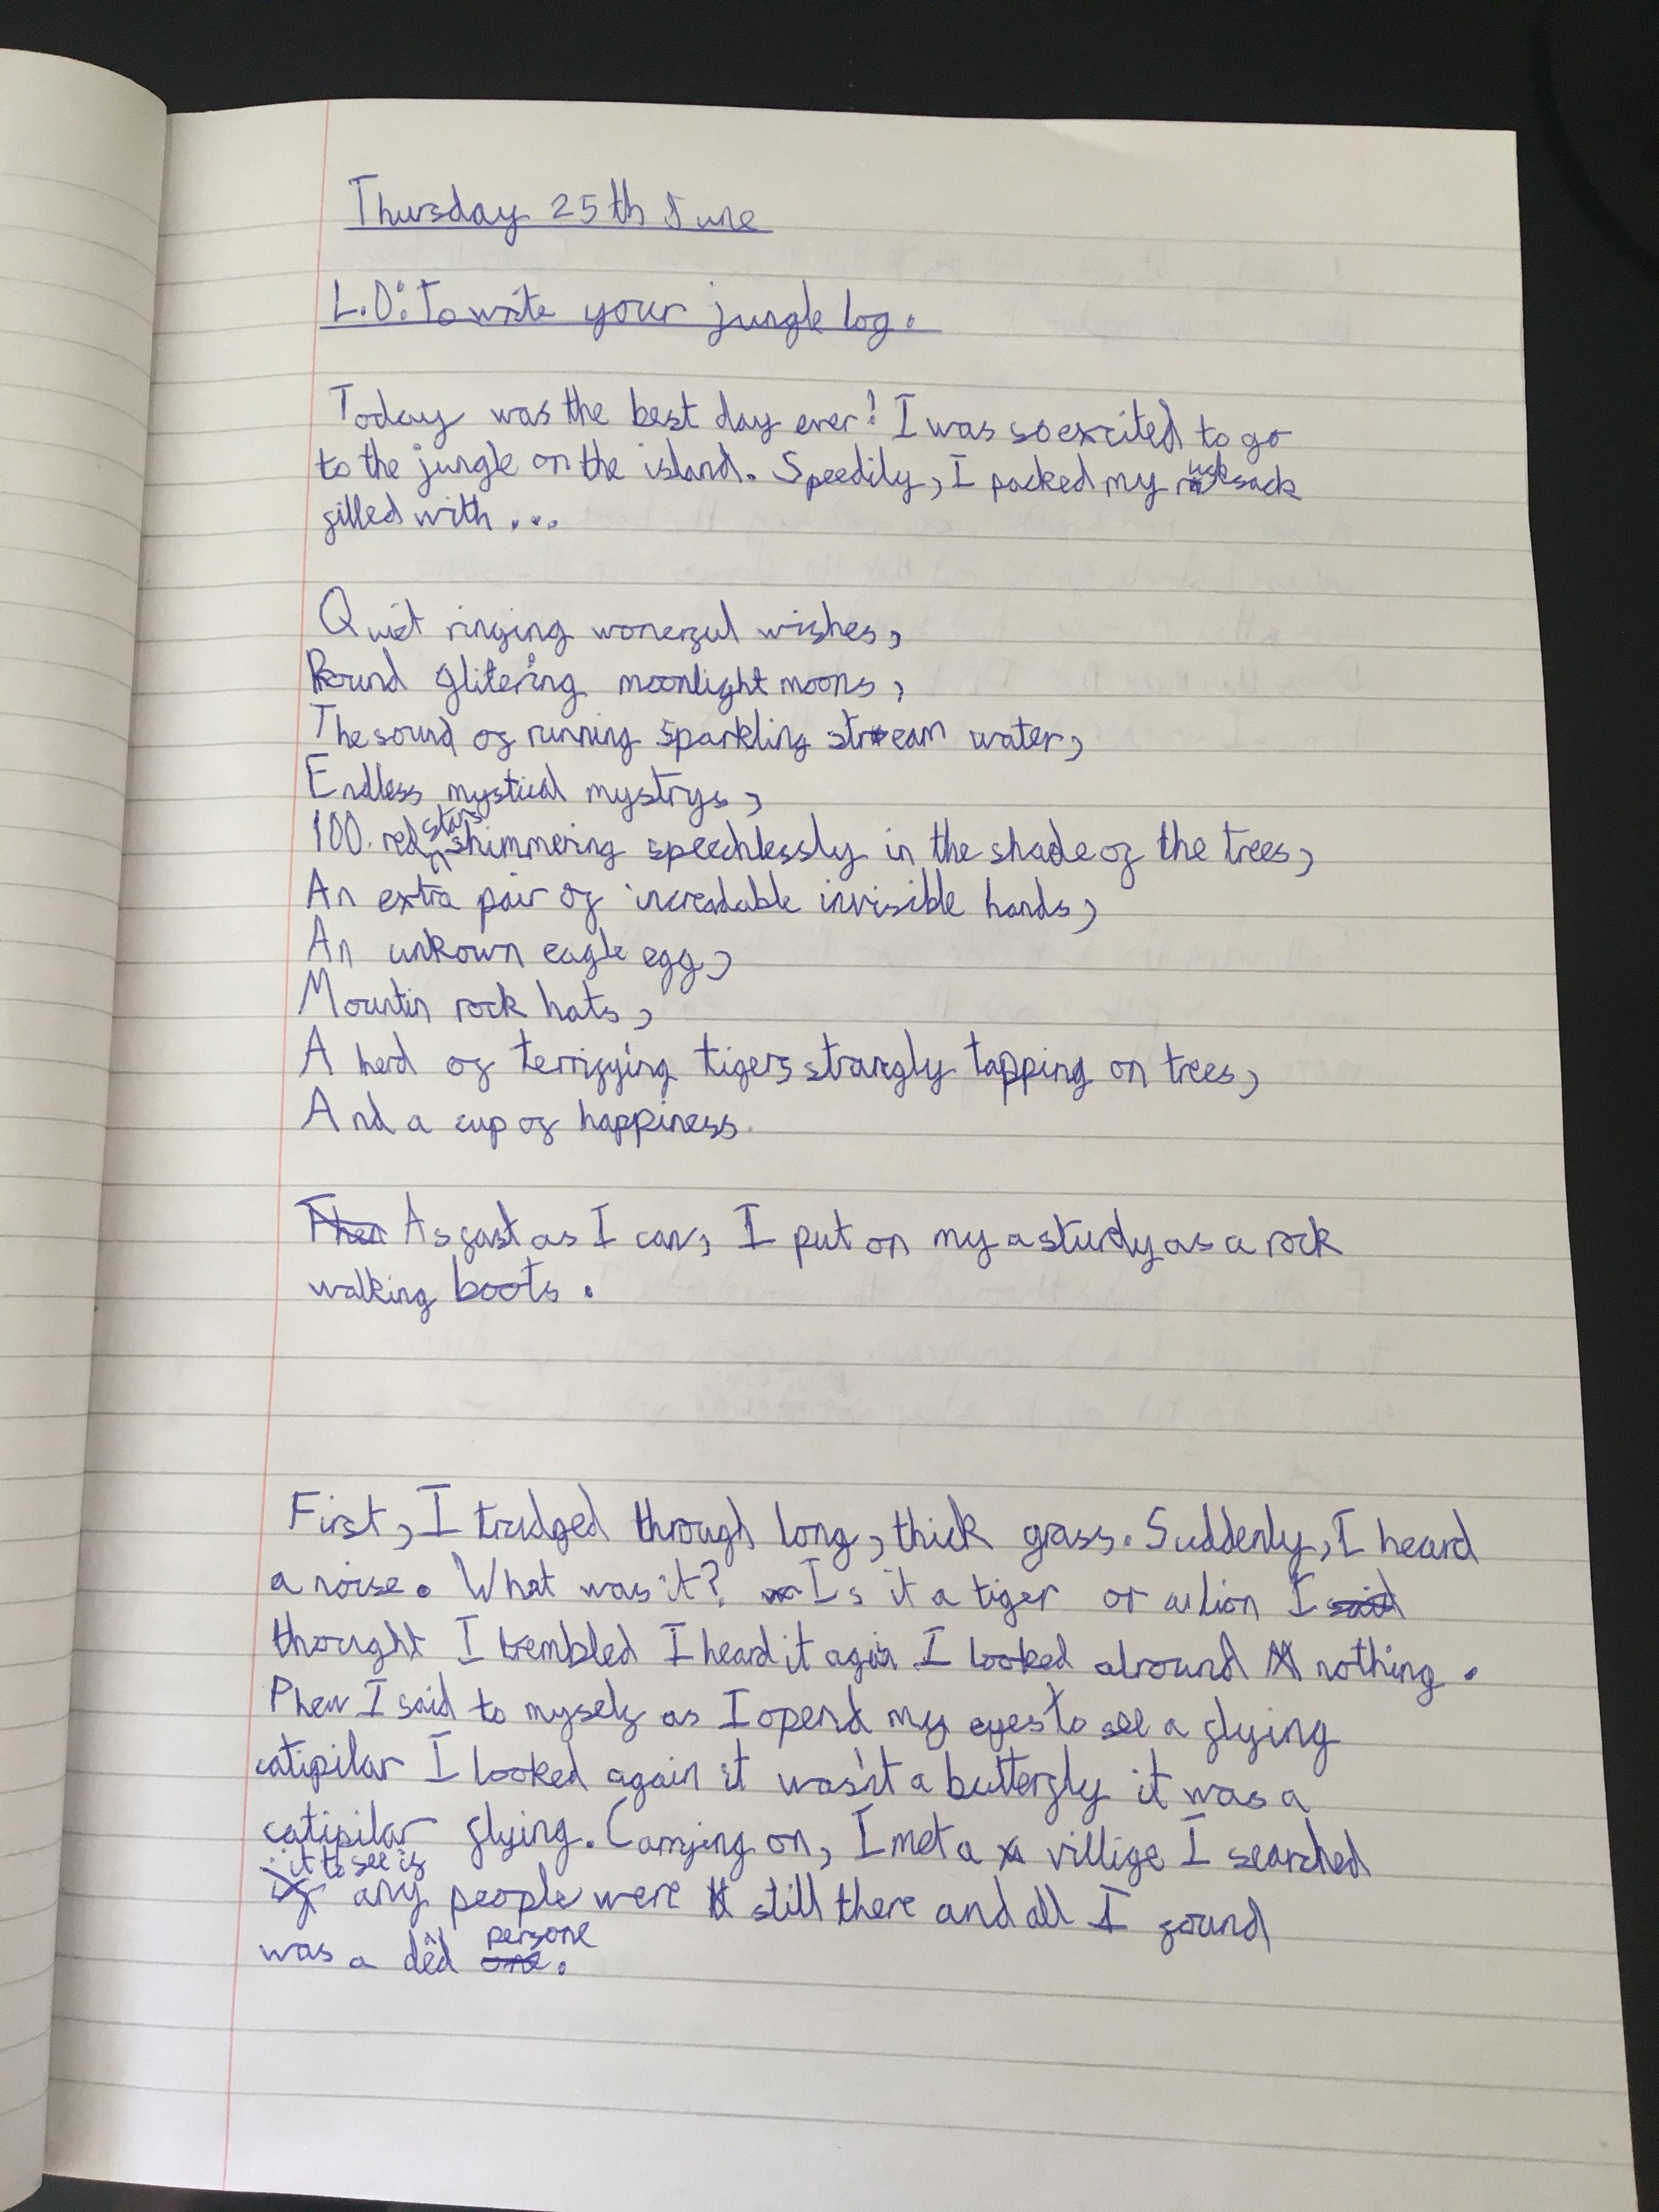 Thursday 25th June
L.O: To write your jungle log.
Today was the best day ever! I was so excited to go
to the jungle on the island. Speedily, I packed my rucksack
filled with ...
Quiet ringing wonerful wishes,
Round glitering moonlight moons,
The sound of running sparkling stream water,
Endless mystical mystrys,
100. red stars shimmering speechlessly in the shade of the trees,
An extra pair of increadable invisible hands,
An unkown eagle egg,
Mountin rock hats,
A herd of terrifying tigers strangly tapping on trees,
And a cup of happiness.
Then As fast as I can, I put on my a sturdy as a rock
walking boots.
First, I trudged through long, thick grass. Suddenly, I heard
a noise. What was it? Is it a tiger or a lion I said
thought I trembled I heard it again I looked alround nothing.
Phew I said to myself as I opend my eyes to see a flying
catipilar I looked again it wasn't a butterfly it was a
catipilar flying. Carrying on, I met a villige I searched
it to see if any people were still there and all I found
was a ded one persone.